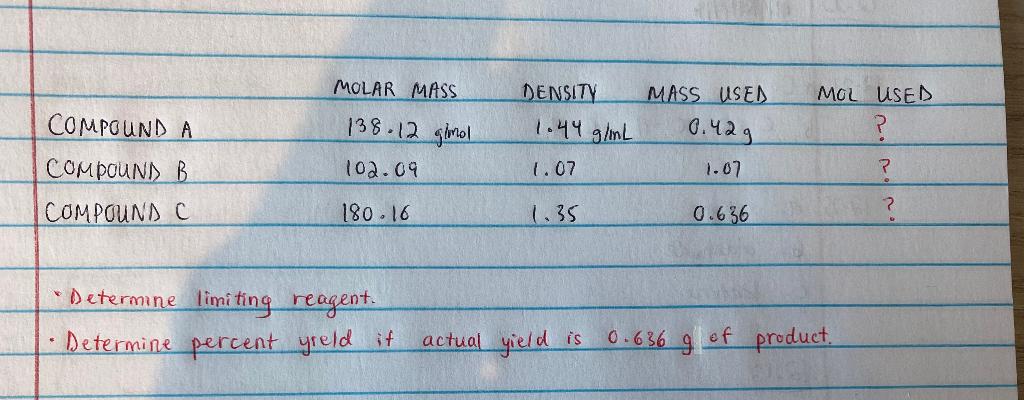 MOLAR MASS DENSITY MASS USED MOL USED
COMPOUND A 138.12 g/mol 1.44 g/mL 0.42 g ?
COMPOUND B 102.09 1.07 1.07 ?
COMPOUND C 180.16 1.35 0.636 ?
• Determine limiting reagent.
• Determine percent yield if actual yield is 0.636 g of product.